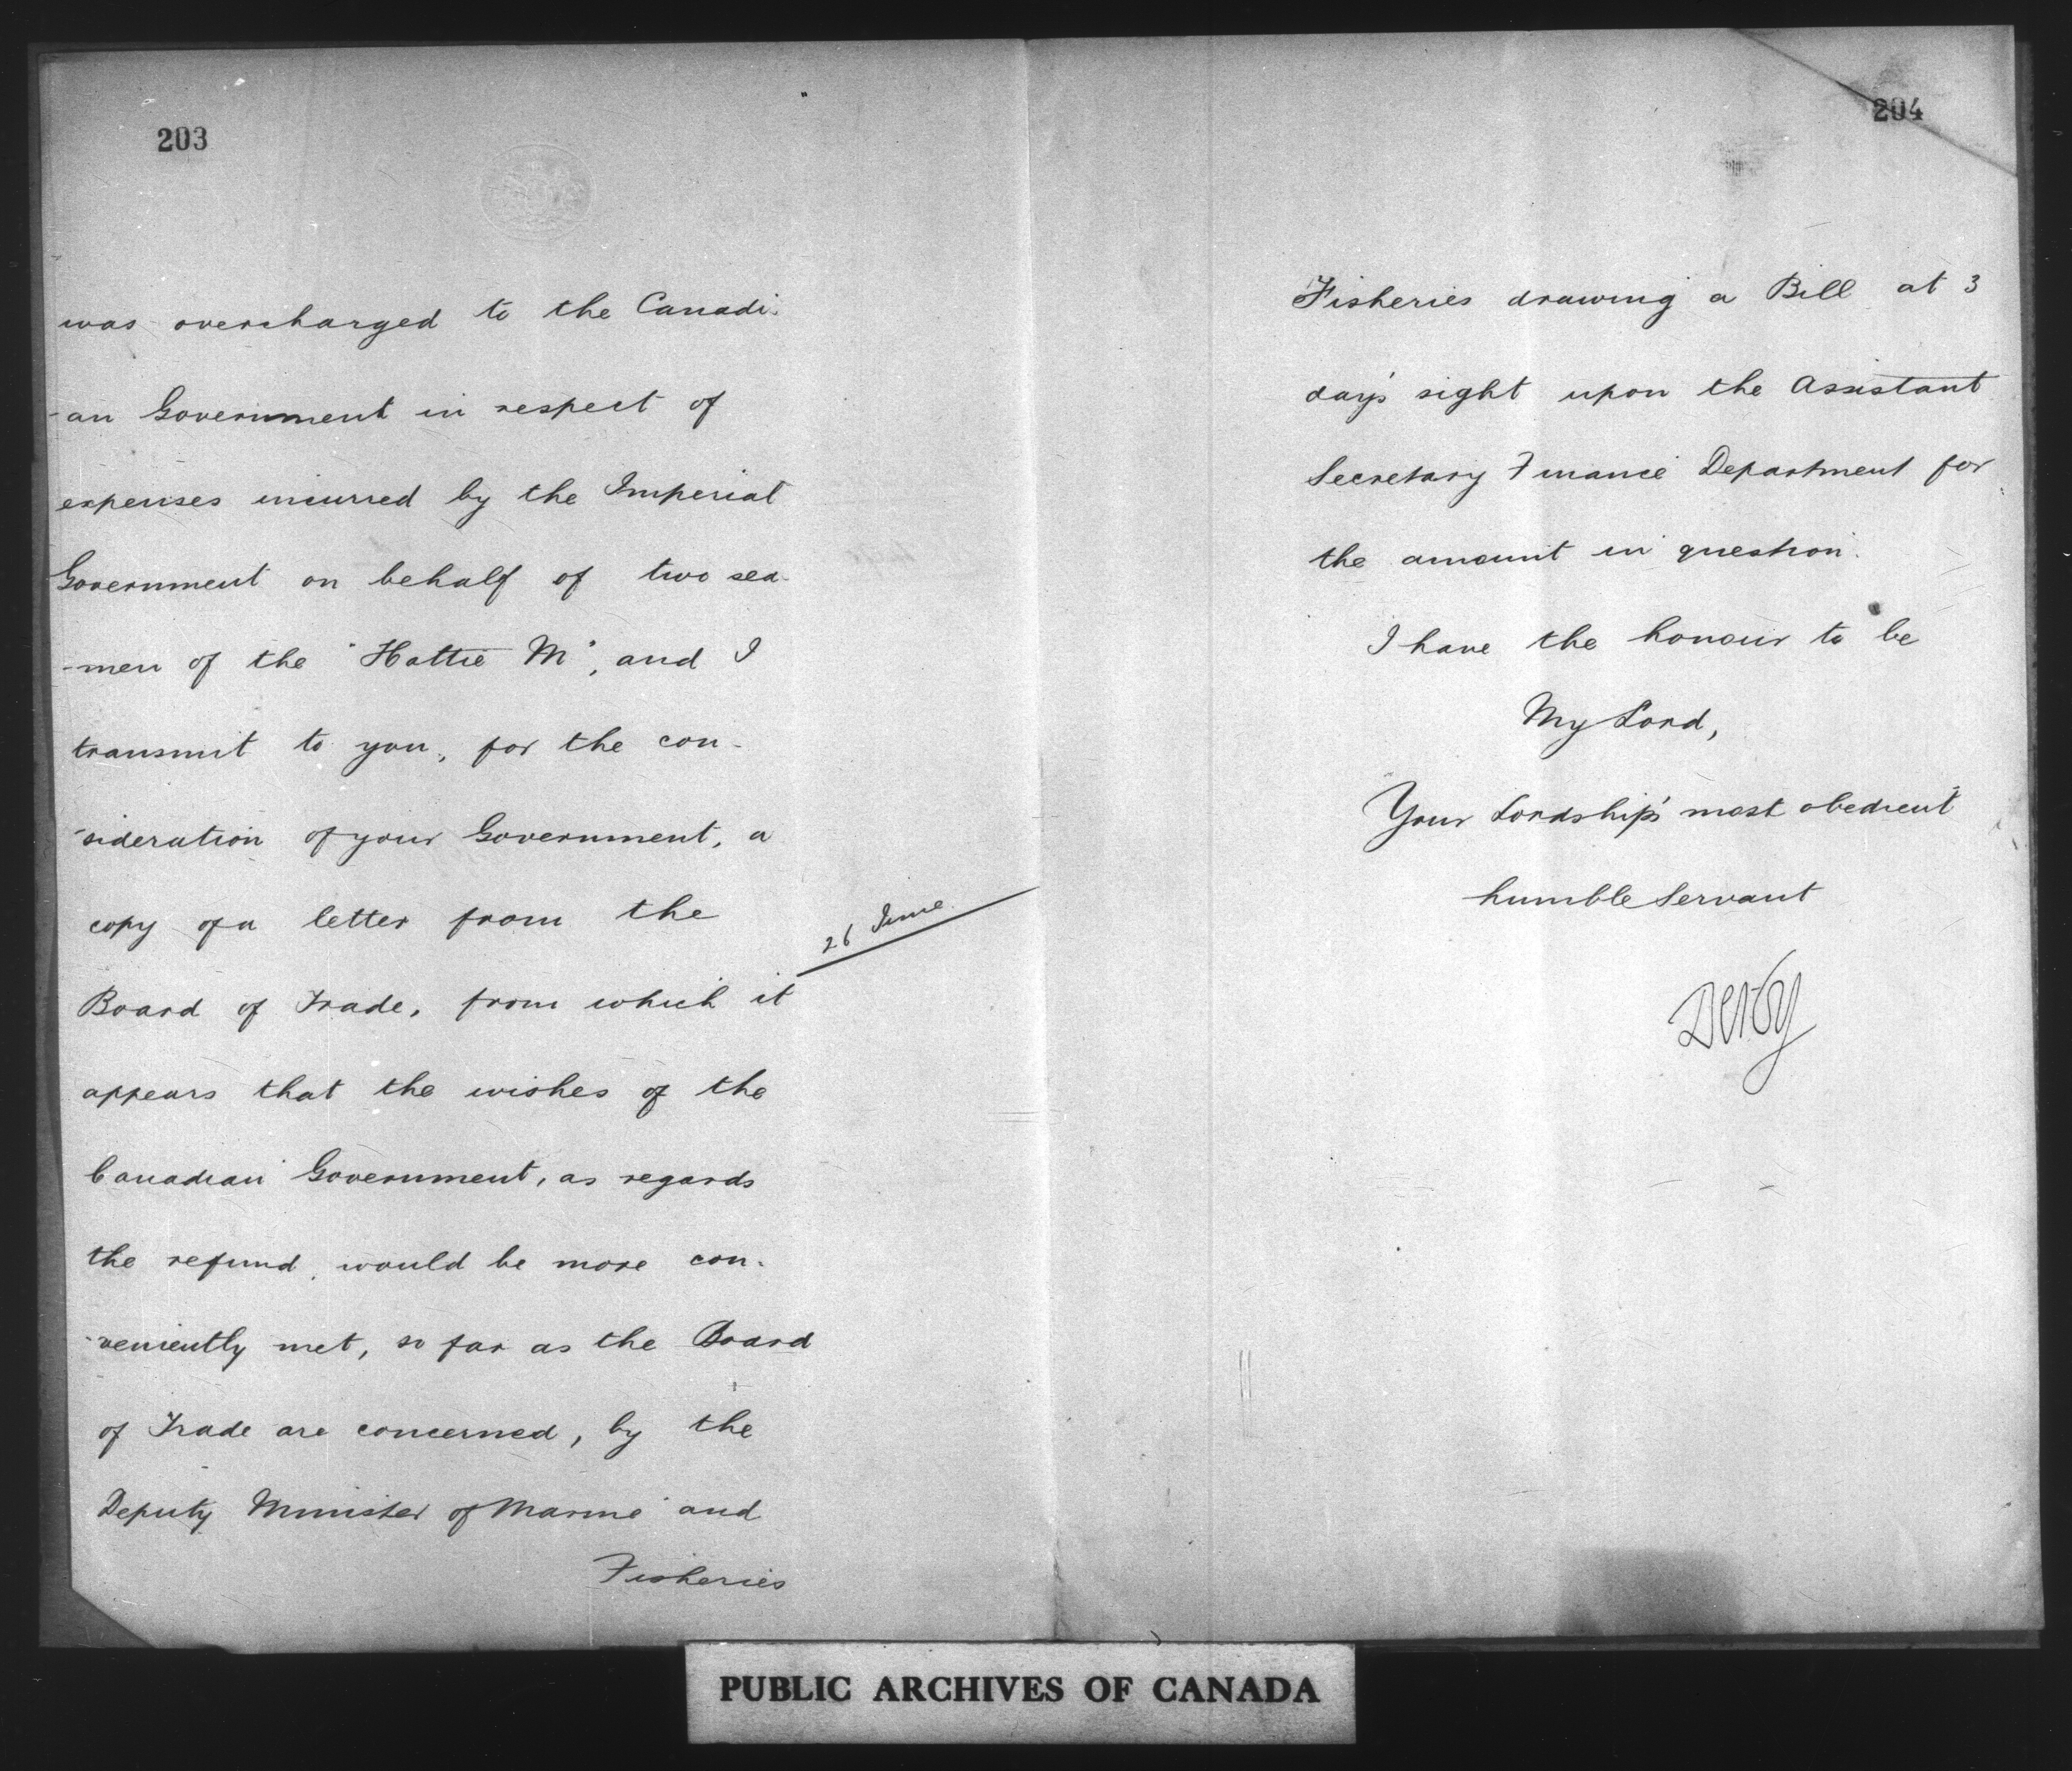 203
was overcharged to the Canadi-
-an Government in respect of
expenses incurred by the Imperial
Government on behalf of two sea-
-men of the "Hattie M", and I
transmit to you, for the con-
-sideration of your Government, a
copy of a letter from the
26 June.
Board of Trade, from which it
appears that the wishes of the
Canadian Government, as regards
the refund, would be more con-
-veniently met, so far as the Board
of Trade are concerned, by the
Deputy Minister of Marine and
Fisheries
204
Fisheries drawing a Bill at 3
day's sight upon the Assistant
Secretary Finance Department for
the amount in question.
I have the honour to be
My Lord,
Your Lordship's most obedient
humble Servant
Derby
PUBLIC ARCHIVES OF CANADA